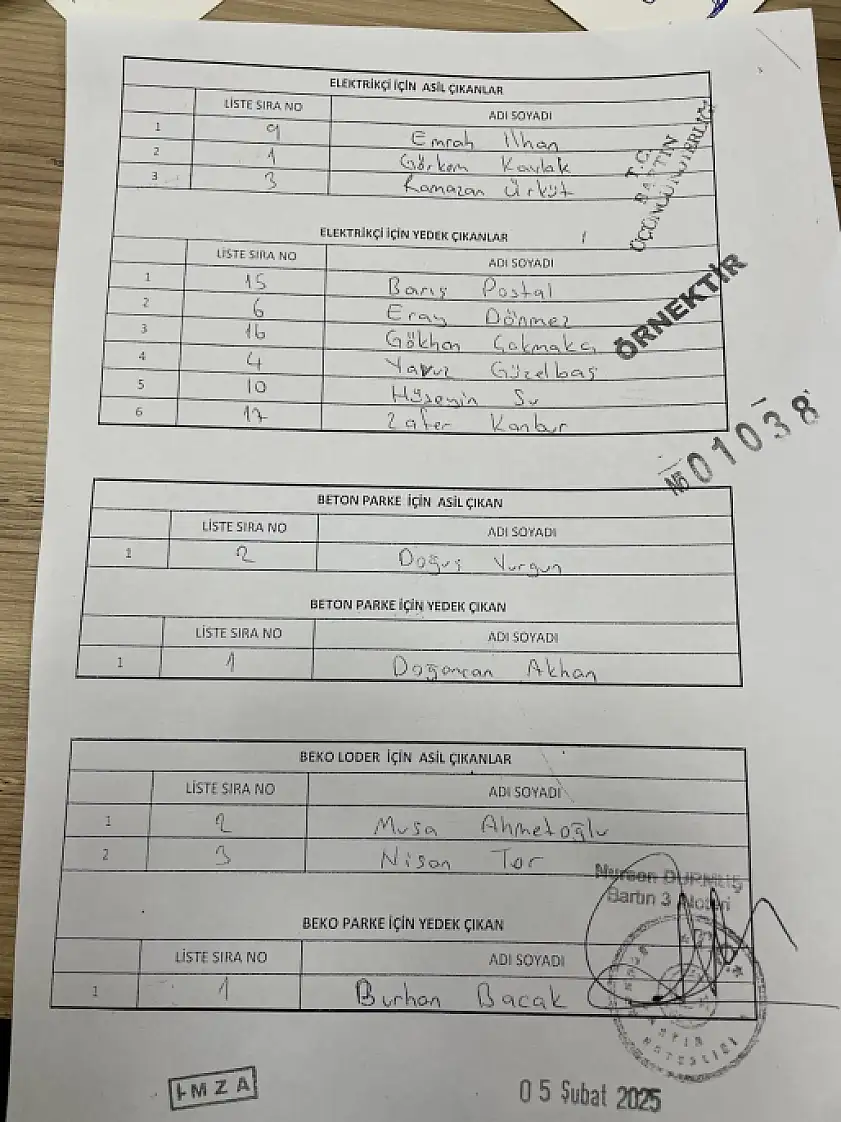 ELEKTRİKÇİ İÇİN ASİL ÇIKANLAR
LİSTE SIRA NO ADI SOYADI
1 9 Emrah İlhan
2 1 Görkem Kavlak
3 3 Ramazan Ürküt
T.C.
BARTIN
ÜÇÜNCÜ NOTERLİĞİ
ELEKTRİKÇİ İÇİN YEDEK ÇIKANLAR
LİSTE SIRA NO ADI SOYADI
1 15 Barış Postal
2 6 Eray Dönmez
3 16 Gökhan Çakmakçı
4 4 Yavuz Güzelbaş
5 10 Hüseyin Su
6 17 Zafer Kanbur
ÖRNEKTİR
№ 01038
BETON PARKE İÇİN ASİL ÇIKAN
LİSTE SIRA NO ADI SOYADI
1 2 Doğuş Vurgun
BETON PARKE İÇİN YEDEK ÇIKAN
LİSTE SIRA NO ADI SOYADI
1 1 Doğancan Akhan
BEKO LODER İÇİN ASİL ÇIKANLAR
LİSTE SIRA NO ADI SOYADI
1 2 Musa Ahmetoğlu
2 3 Nisan Tor
Nurşen DURMUŞ
Bartın 3. Noteri
BEKO PARKE İÇİN YEDEK ÇIKAN
LİSTE SIRA NO ADI SOYADI
1 1 Burhan Bacak
İMZA
05 Şubat 2025